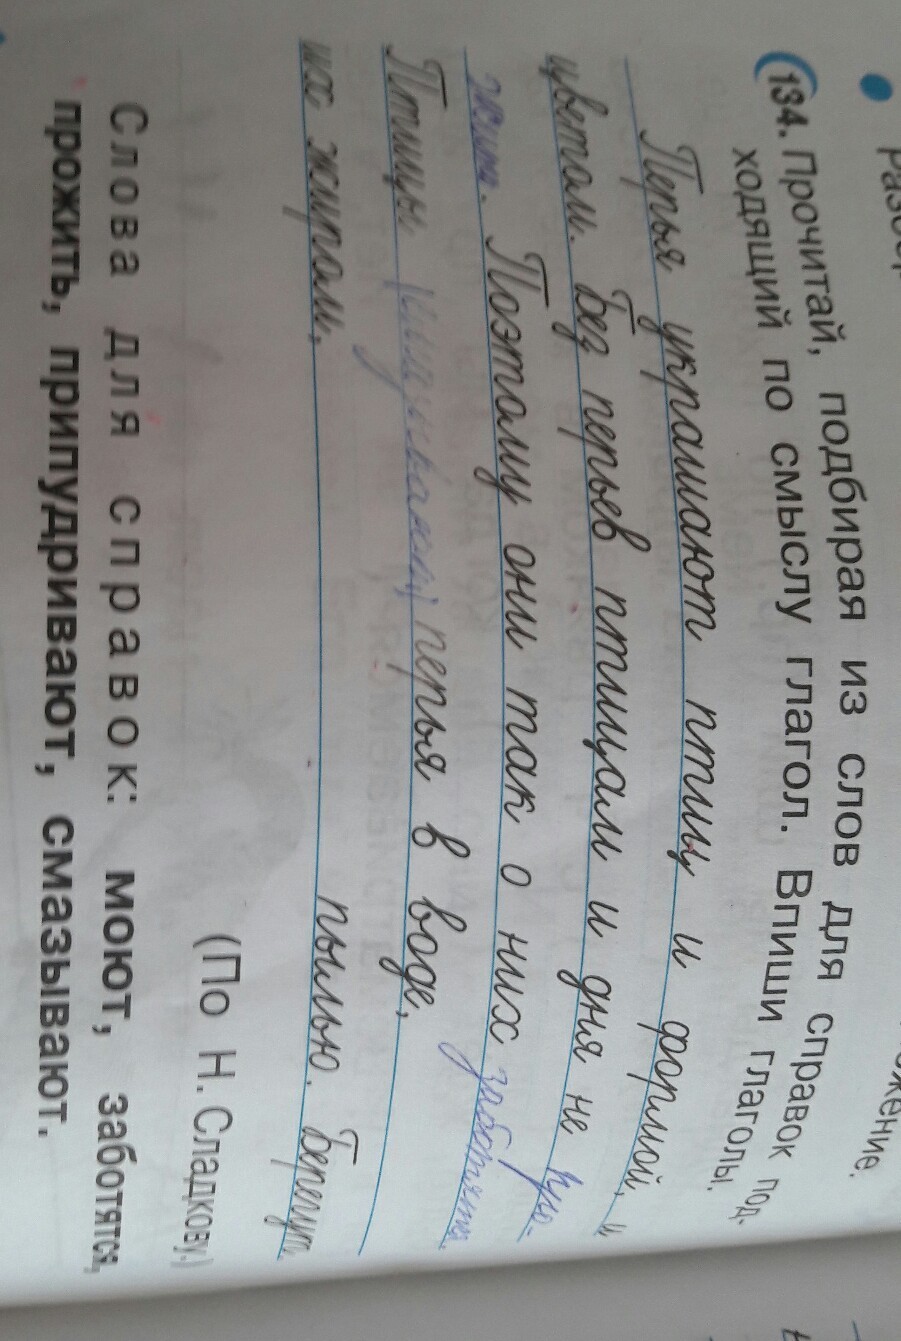 134. Прочитай, подбирая из слов для справок под-
ходящий по смыслу глагол. Впиши глаголы.
Перья украшают птиц и формой, и
цветом. Без перьев птицам и дня не про-
жить. Поэтому они так о них заботятся.
Птицы перья в воде,
пылью. Берегут
их жиром.
(По Н. Сладкову.)
Слова для справок: моют, заботятся,
прожить, припудривают, смазывают.